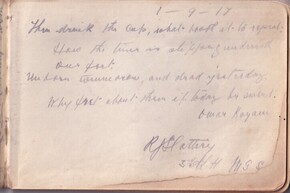 1 - 9 - 17
Then drink the cup, what boots it to repeat
How the time is slipping underneath
our feet.
Unborn tomorrow, and dead yesterday
Why fret about them if today be sweet.
Omar Kayam
R J Slattery